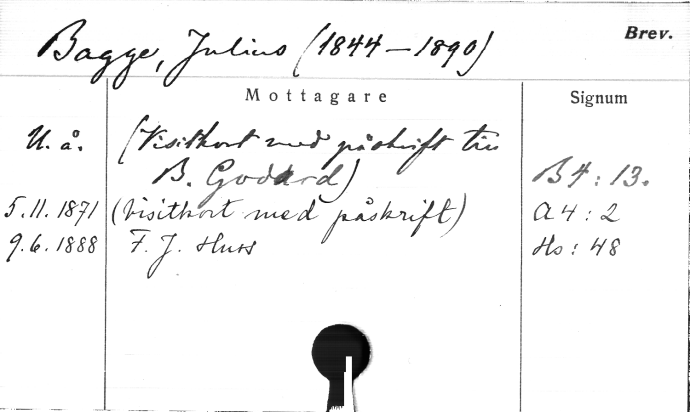 Brev.
Bagge, Julius (1844–1890)
Mottagare Signum
U. å. (Visitkort med påskrift till
B. Godard) B4: 13.
5.11.1871 (Visitkort med påskrift) A4: 2
9.6.1888 F. J. Huss Hs: 48